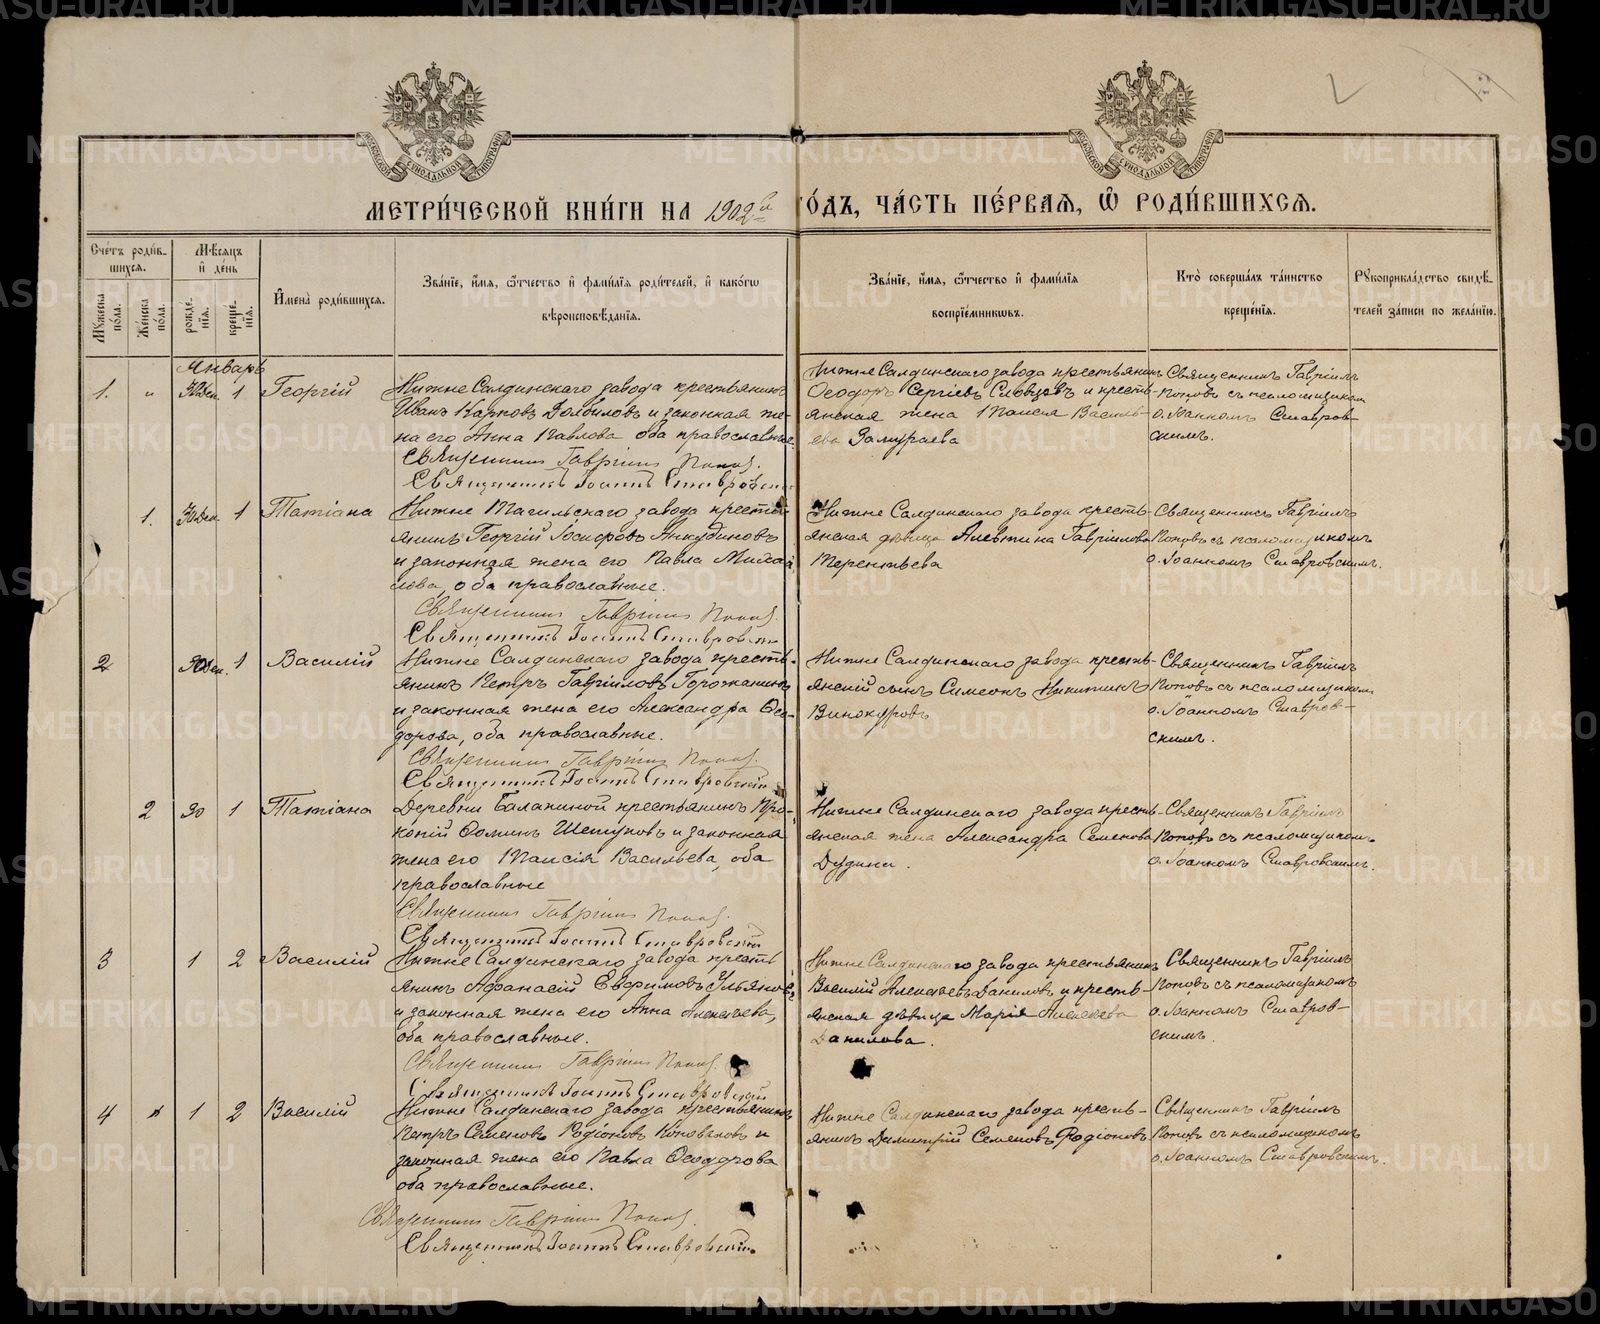 МЕТРИ́ЧЕСКОЙ КНИ́ГИ НА 1902й ГО́ДЪ, ЧА́СТЬ ПЕ́РВАѦ, Ѡ҆ РОДИ́ВШИХСѦ.
Сче́тъ роди́в-
шихсѧ.
Мѣ́сѧцъ
и҆ де́нь
Му́жеска
по́ла.
Же́нска
по́ла.
рожде́-
нїѧ.
креще́-
нїѧ.
И҆мена̀ роди́вшихсѧ.
Зва́нїе, и҆́мѧ, ѻ҆́тчество и҆ фами́лїѧ роди́телей, и҆ како́гѡ
вѣроисповѣ́данїѧ.
Зва́нїе, и҆́мѧ, ѻ҆́тчество и҆ фами́лїѧ
воспрїе́мникѡвъ.
Кто̀ соверша́лъ та́инство
креще́нїѧ.
Рꙋкоприкла́дство свидѣ́-
телей за́писи по жела́нїю.
Январь
1. " 30 Дек. 1 Георгій
Нижне Салдинскаго завода крестьянинъ
Иванъ Карповъ Долбиловъ и законная же-
на его Анна Павлова оба православные
Священникъ Гавріилъ Поповъ.
Священникъ Іоаннъ Ставровскій
Нижне Салдинскаго завода крестьянинъ
Ѳеодоръ Сергіевъ Словцовъ и кресть-
янская жена Таисія Василь-
ева Замураева
Священникъ Гавріилъ
Поповъ съ псаломщикомъ
о. Іоанномъ Ставров-
скимъ.
1. 30 Дек. 1 Татіана
Нижне Тагильскаго завода кресть-
янинъ Георгій Іосифовъ Анкудиновъ
и законная жена его Павла Михаи-
лова, оба православные.
Священникъ Гавріилъ Поповъ.
Священникъ Іоаннъ Ставровскій
Нижне Салдинскаго завода кресть-
янская дѣвица Алевтина Гавріилова
Терентьева
Священникъ Гавріилъ
Поповъ съ псаломщикомъ
о. Іоанномъ Ставровскимъ.
2 30 Дек. 1 Василій
Нижне Салдинскаго завода кресть-
янинъ Петръ Гавріиловъ Горожанинъ
и законная жена его Александра Ѳео-
дорова, оба православные.
Священникъ Гавріилъ Поповъ.
Священникъ Іоаннъ Ставровскій
Нижне Салдинскаго завода кресть-
янскій сынъ Симеонъ Никитинъ
Винокуровъ
Священникъ Гавріилъ
Поповъ съ псаломщикомъ
о. Іоанномъ Ставров-
скимъ.
2 30 1 Татіана
Деревни Балакиной крестьянинъ Про-
копій Ѳоминъ Шетуковъ и законная
жена его Таисія Васильева, оба
православные
Священникъ Гавріилъ Поповъ.
Священникъ Іоаннъ Ставровскій
Нижне Салдинскаго завода кресть-
янская жена Александра Семенова
Дудина.
Священникъ Гавріилъ
Поповъ съ псаломщикомъ
о. Іоанномъ Ставровскимъ.
3 1 2 Василій
Нижне Салдинскаго завода кресть-
янинъ Аѳанасій Евфимовъ Ульяновъ
и законная жена его Анна Алексѣева,
оба православные.
Священникъ Гавріилъ Поповъ.
Священникъ Іоаннъ Ставровскій
Нижне Салдинскаго завода крестьянинъ
Василій Алексѣевъ Даниловъ и кресть-
янская дѣвица Марія Алексѣева
Данилова.
Священникъ Гавріилъ
Поповъ съ псаломщикомъ
о. Іоанномъ Ставров-
скимъ.
4 1 2 Василій
Нижне Салдинскаго завода крестьянинъ
Петръ Семеновъ Родіоновъ Коноваловъ и
законная жена его Павла Ѳеодорова
оба православные.
Священникъ Гавріилъ Поповъ.
Священникъ Іоаннъ Ставровскій.
Нижне Салдинскаго завода кресть-
янинъ Димитрій Семеновъ Родіоновъ
Священникъ Гавріилъ
Поповъ съ псаломщикомъ
о. Іоанномъ Ставровскимъ.
METRIKI.GASO-URAL.RU